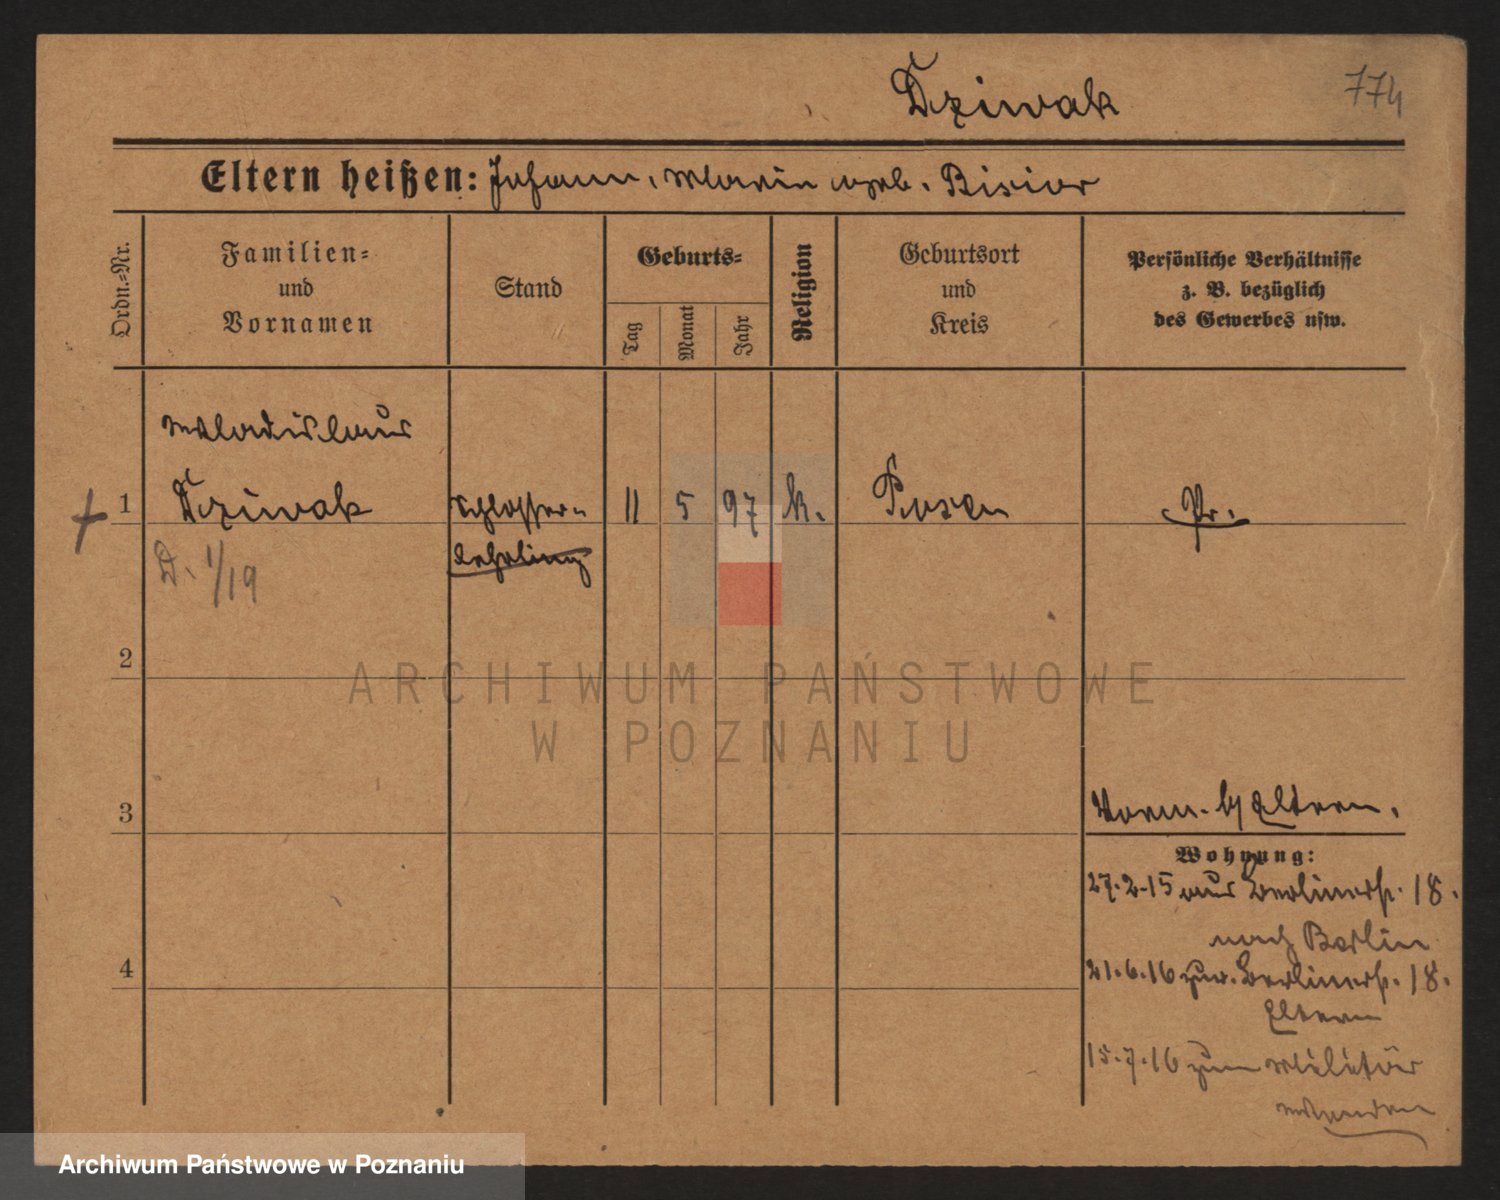 Dziwak
774
Eltern heißen: Johann, Maria geb. Bisior
Ordn.-Nr.
Familien-
und
Vornamen
Stand
Geburts-
Tag
Monat
Jahr
Religion
Geburtsort
und
Kreis
Persönliche Verhältnisse
z. B. bezüglich
des Gewerbes usw.
Wladislaus
1 Dziwak Schlosser- 11 5 97 k. Posen Pr.
Lehrling
D. 1/19
2
ARCHIWUM PAŃSTWOWE
W POZNANIU
3
Vorm. b/ Eltern.
Wohnung:
27.2.15 aus Berlinerstr. 18.
nach Berlin
4
21.6.16 zur. Berlinerstr. 18.
Eltern
15.7.16 zum Militär
Archiwum Państwowe w Poznaniu